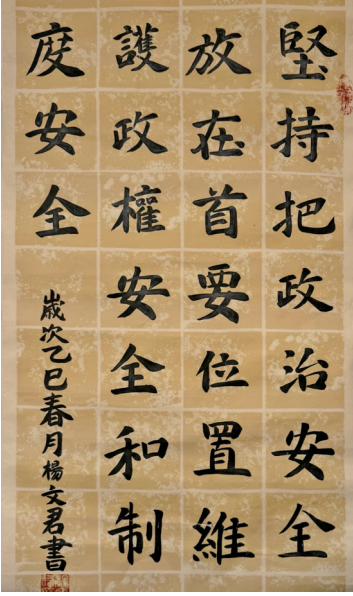 堅持把政治安全
放在首要位置維
護政權安全和制
度安全
歲次乙巳春月楊文君書